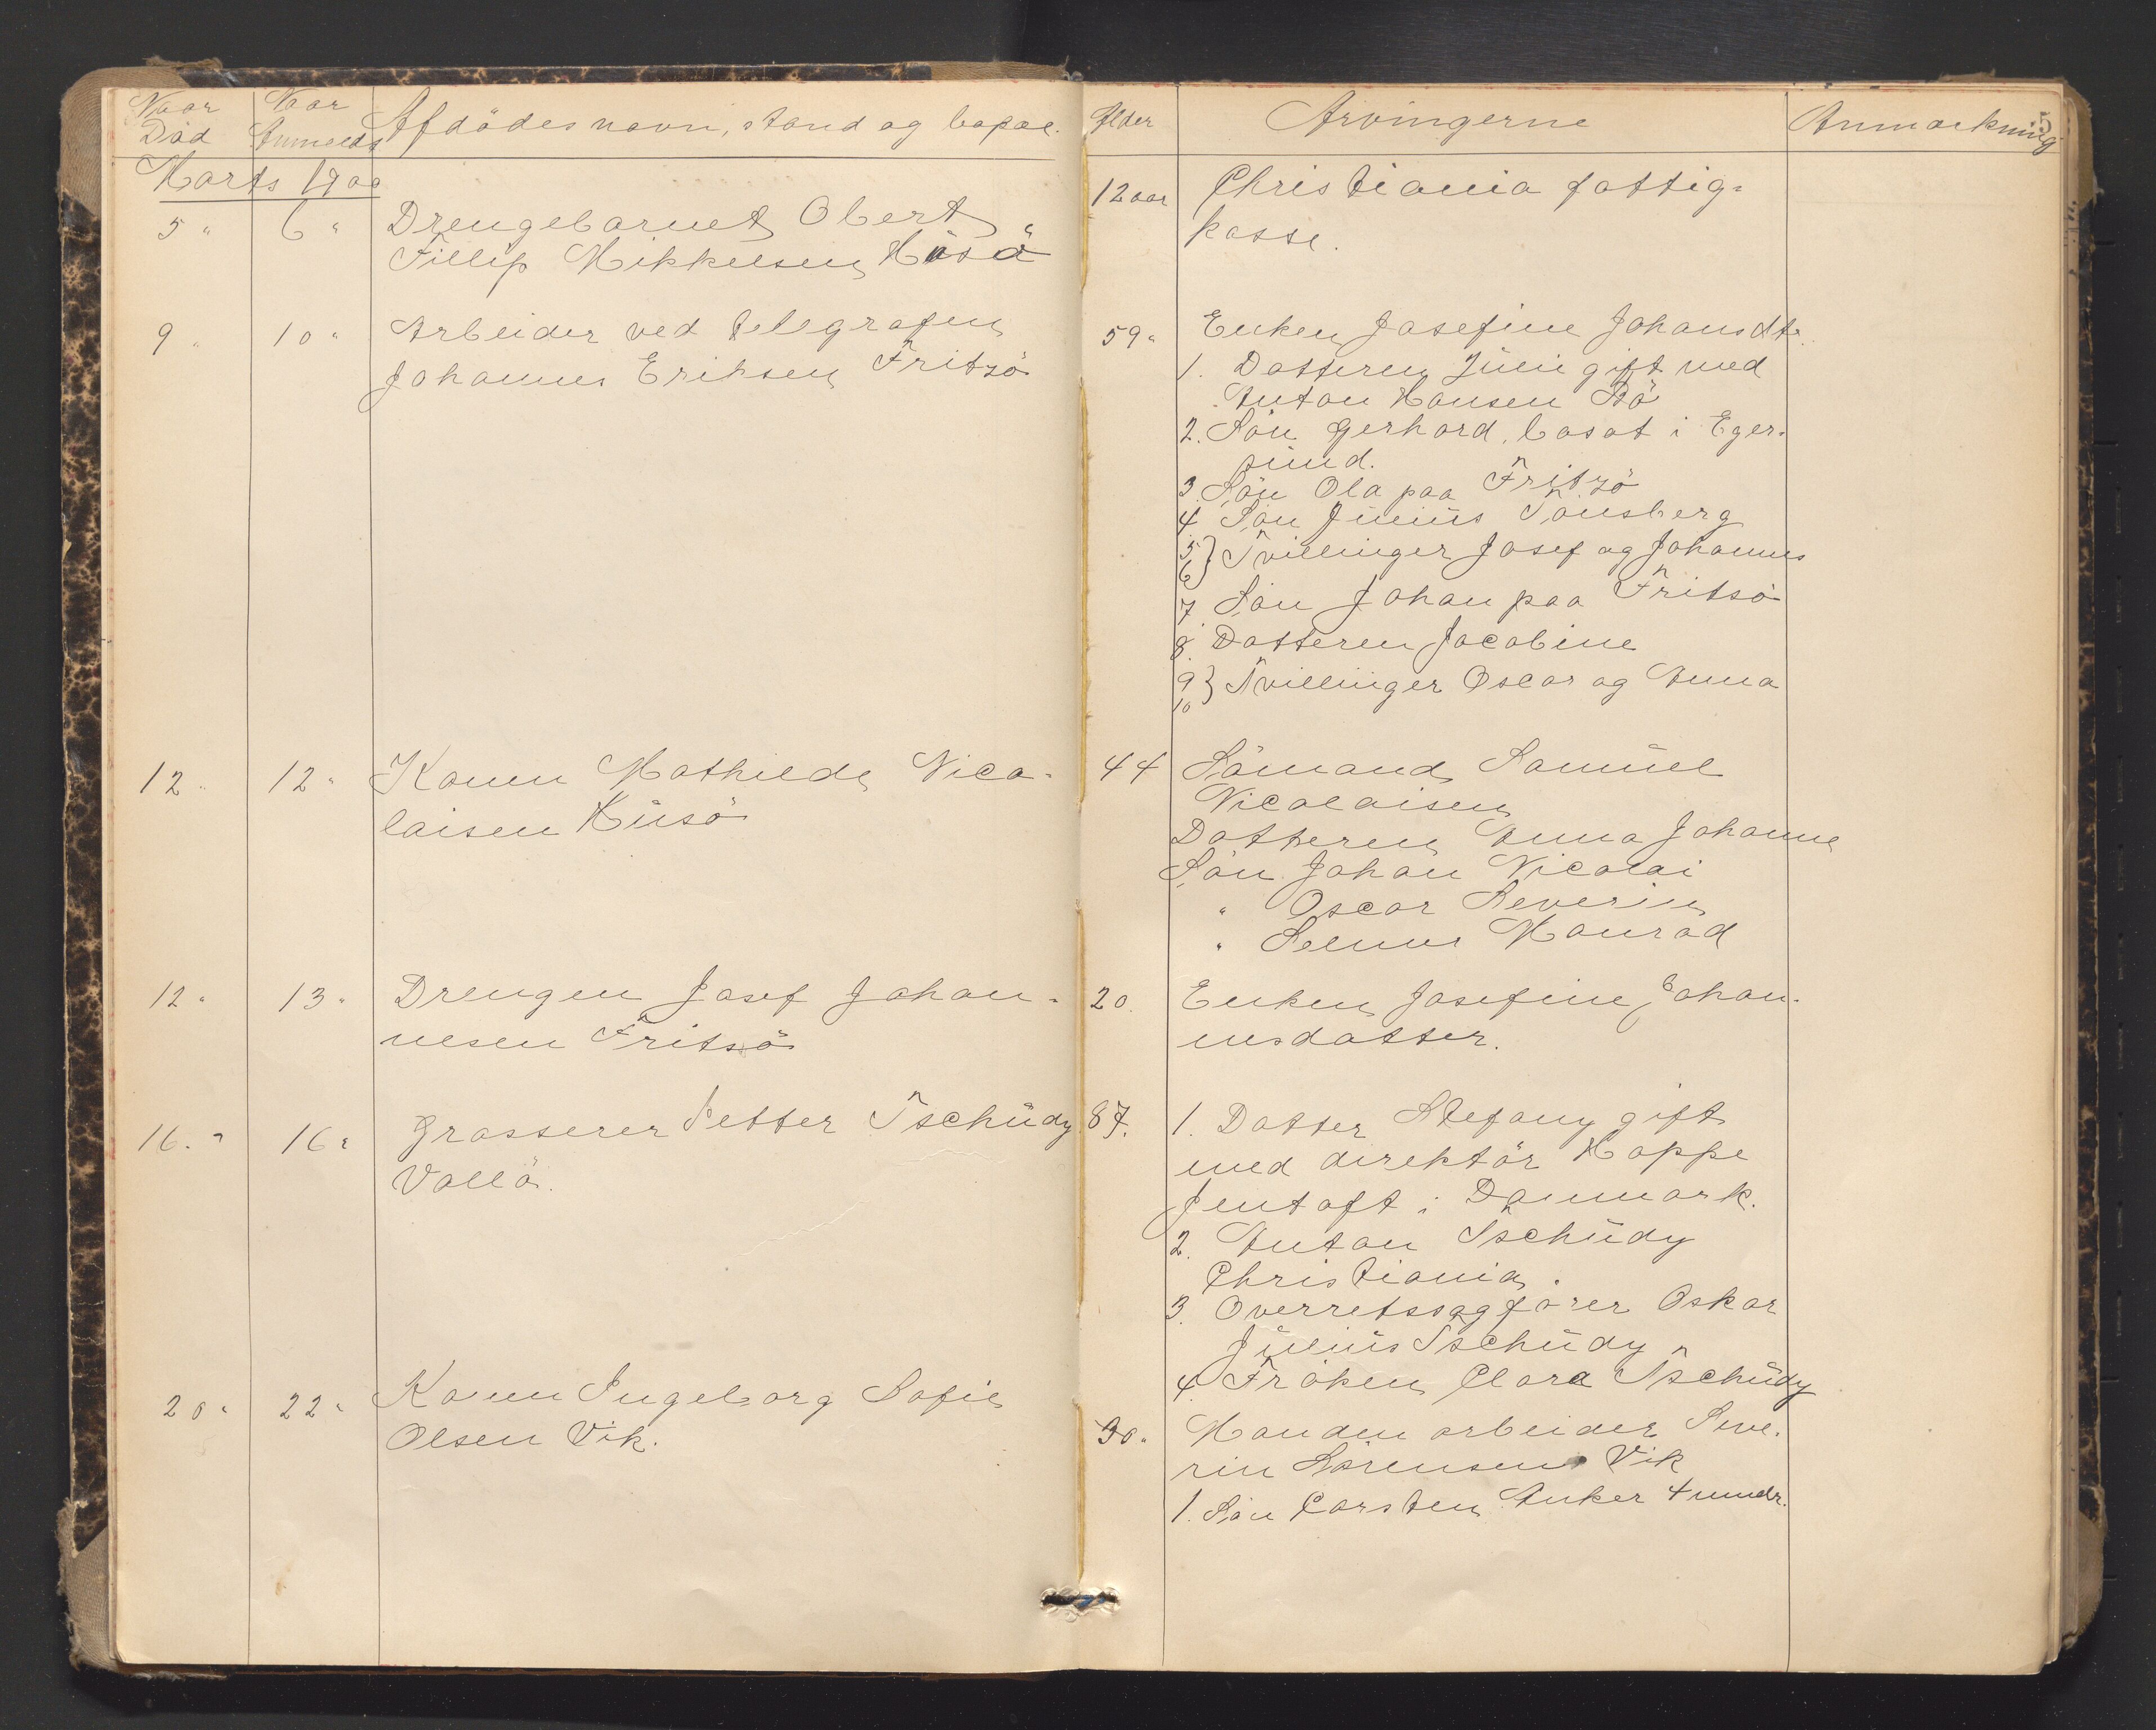 Naar Död
Naar Anmeldt
Afdödes navn, stand og bopæl.
Alder
Arvingerne
Anmærkning
5
Marts 1900
5 " 6 " Drengebarnet Obert
Fillip Mikkelsen Husö
12 aar Christiania fattig-
kasse.
9 " 10 " Arbeider ved telegrafen
Johannes Eriksen Fritzö
59 " Enken Josefine Johansdtr.
1. Datteren Julie gift med
Anton Hansen Bö
2. Sön Gerhard, bosat i Eger-
sund.
3. Sön Ola paa Fritzö
4 Sön Julius Tönsberg
5 6 } Tvillinger Josef og Johannes
7. Sön Johan paa Fritsö
8. Datteren Jacobine
9 10 } Tvillinger Oscar og Anna
12 " 12 " Konen Mathilde Nico-
laisen Husö
44 Sömand Samuel
Nicolaisen
Datteren Anna Johanne
Sön Johan Nicolai
" Oscar Severin
" Selmer Konrad
12 " 13 " Drengen Josef Johan-
nesen Fritsö
20. Enken Josefine Johan-
nesdatter.
16. " 16 " Grosserer Petter Tschudy
Vallö.
87. 1. Datter Stefany gift
med direktör Hoppe
Jentoft i Danmark.
2. Anton Tschudy
Christiania.
3. Overretssagförer Oskar
Julius Tschudy
4. Fröken Clara Tschudy
20 " 22 " Konen Ingeborg Sofie
Olsen Vik.
30 " Manden arbeider Seve-
rin Sörensen Vik
1. Sön Carsten Anker 4 mndr.